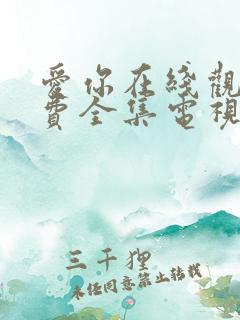 愛你在綫觀
費全集電視
三千狸
未经同意禁止转载